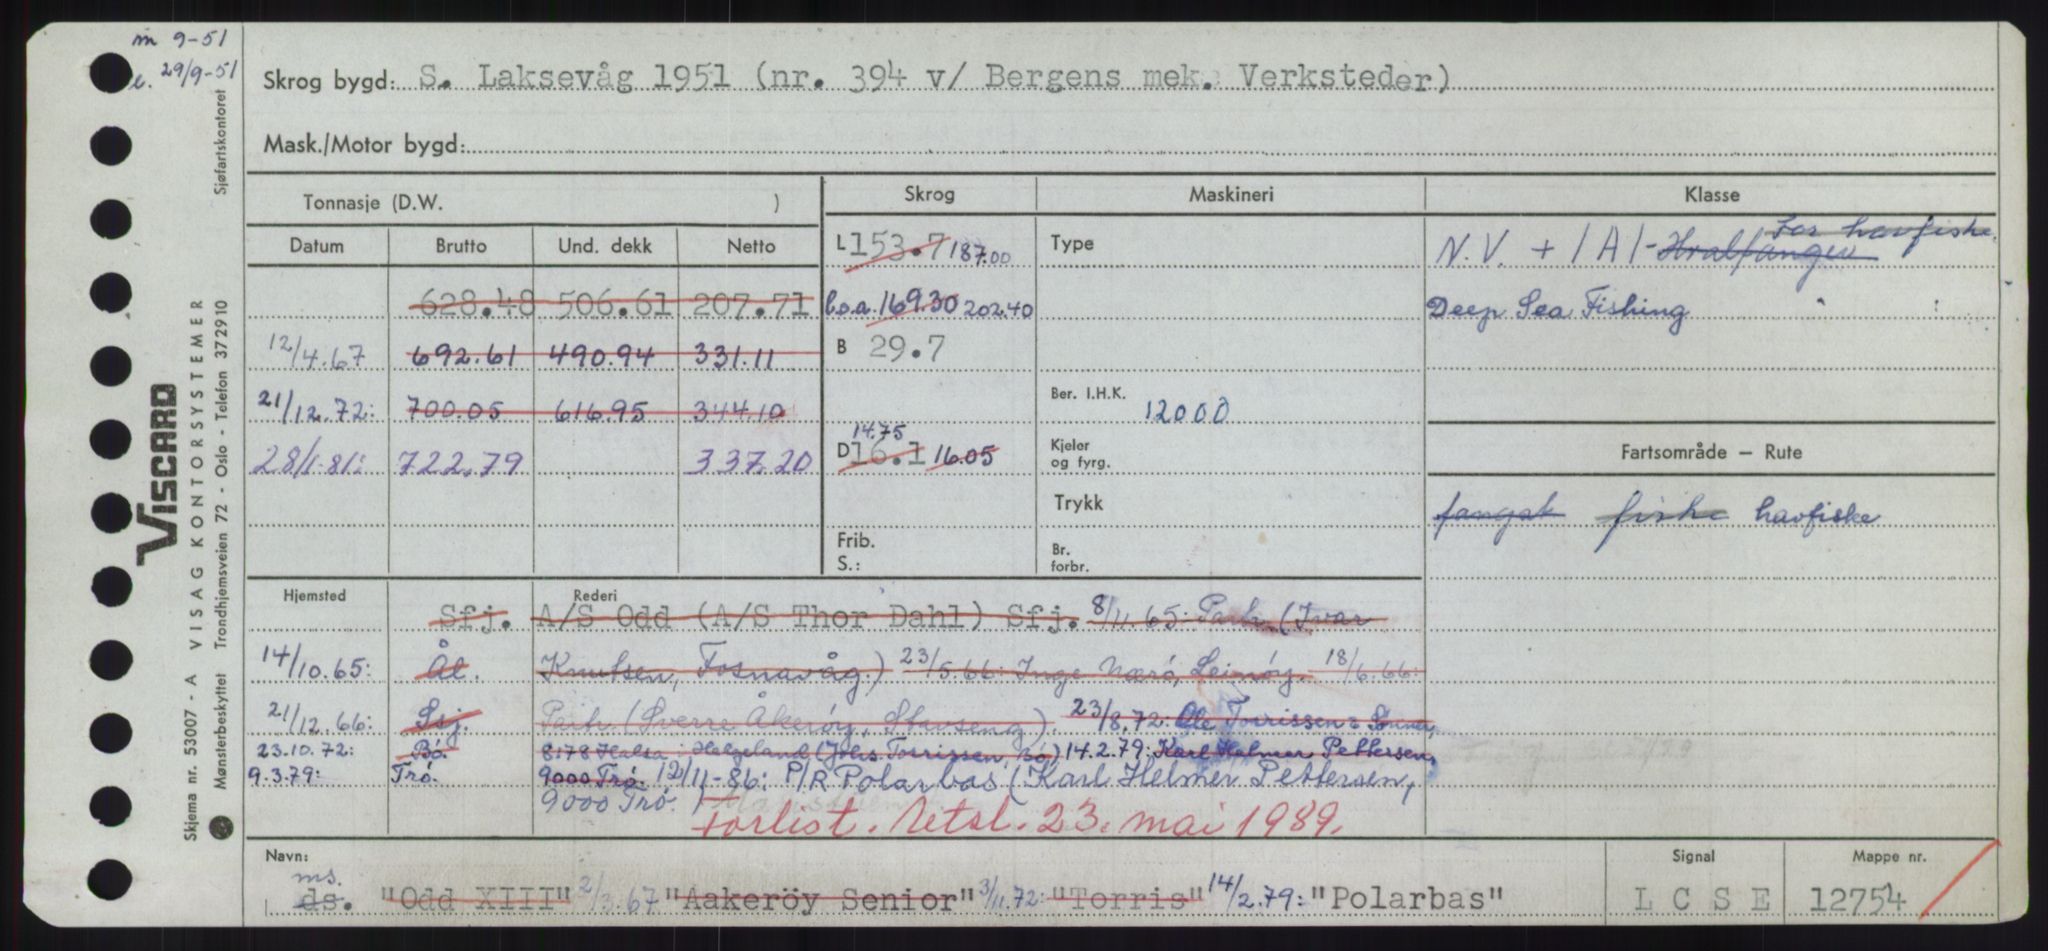 m 9-51
e. 29/9-51
Skrog bygd: S. Laksevåg 1951 (nr. 394 v/ Bergens mek. Verksteder)
Mask./Motor bygd:
Tonnasje (D.W. )
Skrog
Maskineri
Klasse
Datum Brutto Und. dekk Netto
L 153.7 187.00
Type
N.V. + 1A1- Hvalfanger for havfiske.
628.48 506.61 207.71
l.o.a. 169.30 202.40
Deep Sea Fishing
12/4.67 692.61 490.94 331.11
B 29.7
21/12.72: 700.05 616.95 344.10
Ber. I.H.K. 12000
28/1.81: 722.79 337.20
14.75
D 16.1 16.05
Kjeler og fyrg.
Fartsområde – Rute
Trykk
fangst fiske havfiske
Frib. S.:
Br. forbr.
Hjemsted
Rederi
Sfj. A/S Odd (A/S Thor Dahl) Sfj. 8/11.65: Partr. (Ivar
14/10.65: Ål. Knutsen, Fosnavåg.) 23/5.66: Inge Nærö, Leinöy. 18/6.66:
21/12.66: Ssj. Partr. (Sverre Åkeröy, Stavseng). 23/8.72: Ole Torrissen & Sønner,
23.10.72: Bö. 8178 Halsa i Helgeland (Johs. Torrissen, Bö) 14.2.79: Karl Helmer Pettersen,
9.3.79: Trø. 9000 Trø. 12/11-86: P/R Polarbas (Karl Helmer Pettersen,
9000 Trø.
Forlist. Retsl. 23. mai 1989.
Navn:
Signal
Mappe nr.
ms.
ds. "Odd XIII" 2/3.67 "Aakeröy Senior" 3/11.72: "Torris" 14/2.79: "Polarbas"
L C S E
12754
VISCARD
Skjema nr. 53007 - A VISAG KONTORSYSTEMER
Mønsterbeskyttet Trondhjemsveien 72 - Oslo - Telefon 372910 Sjøfartskontoret